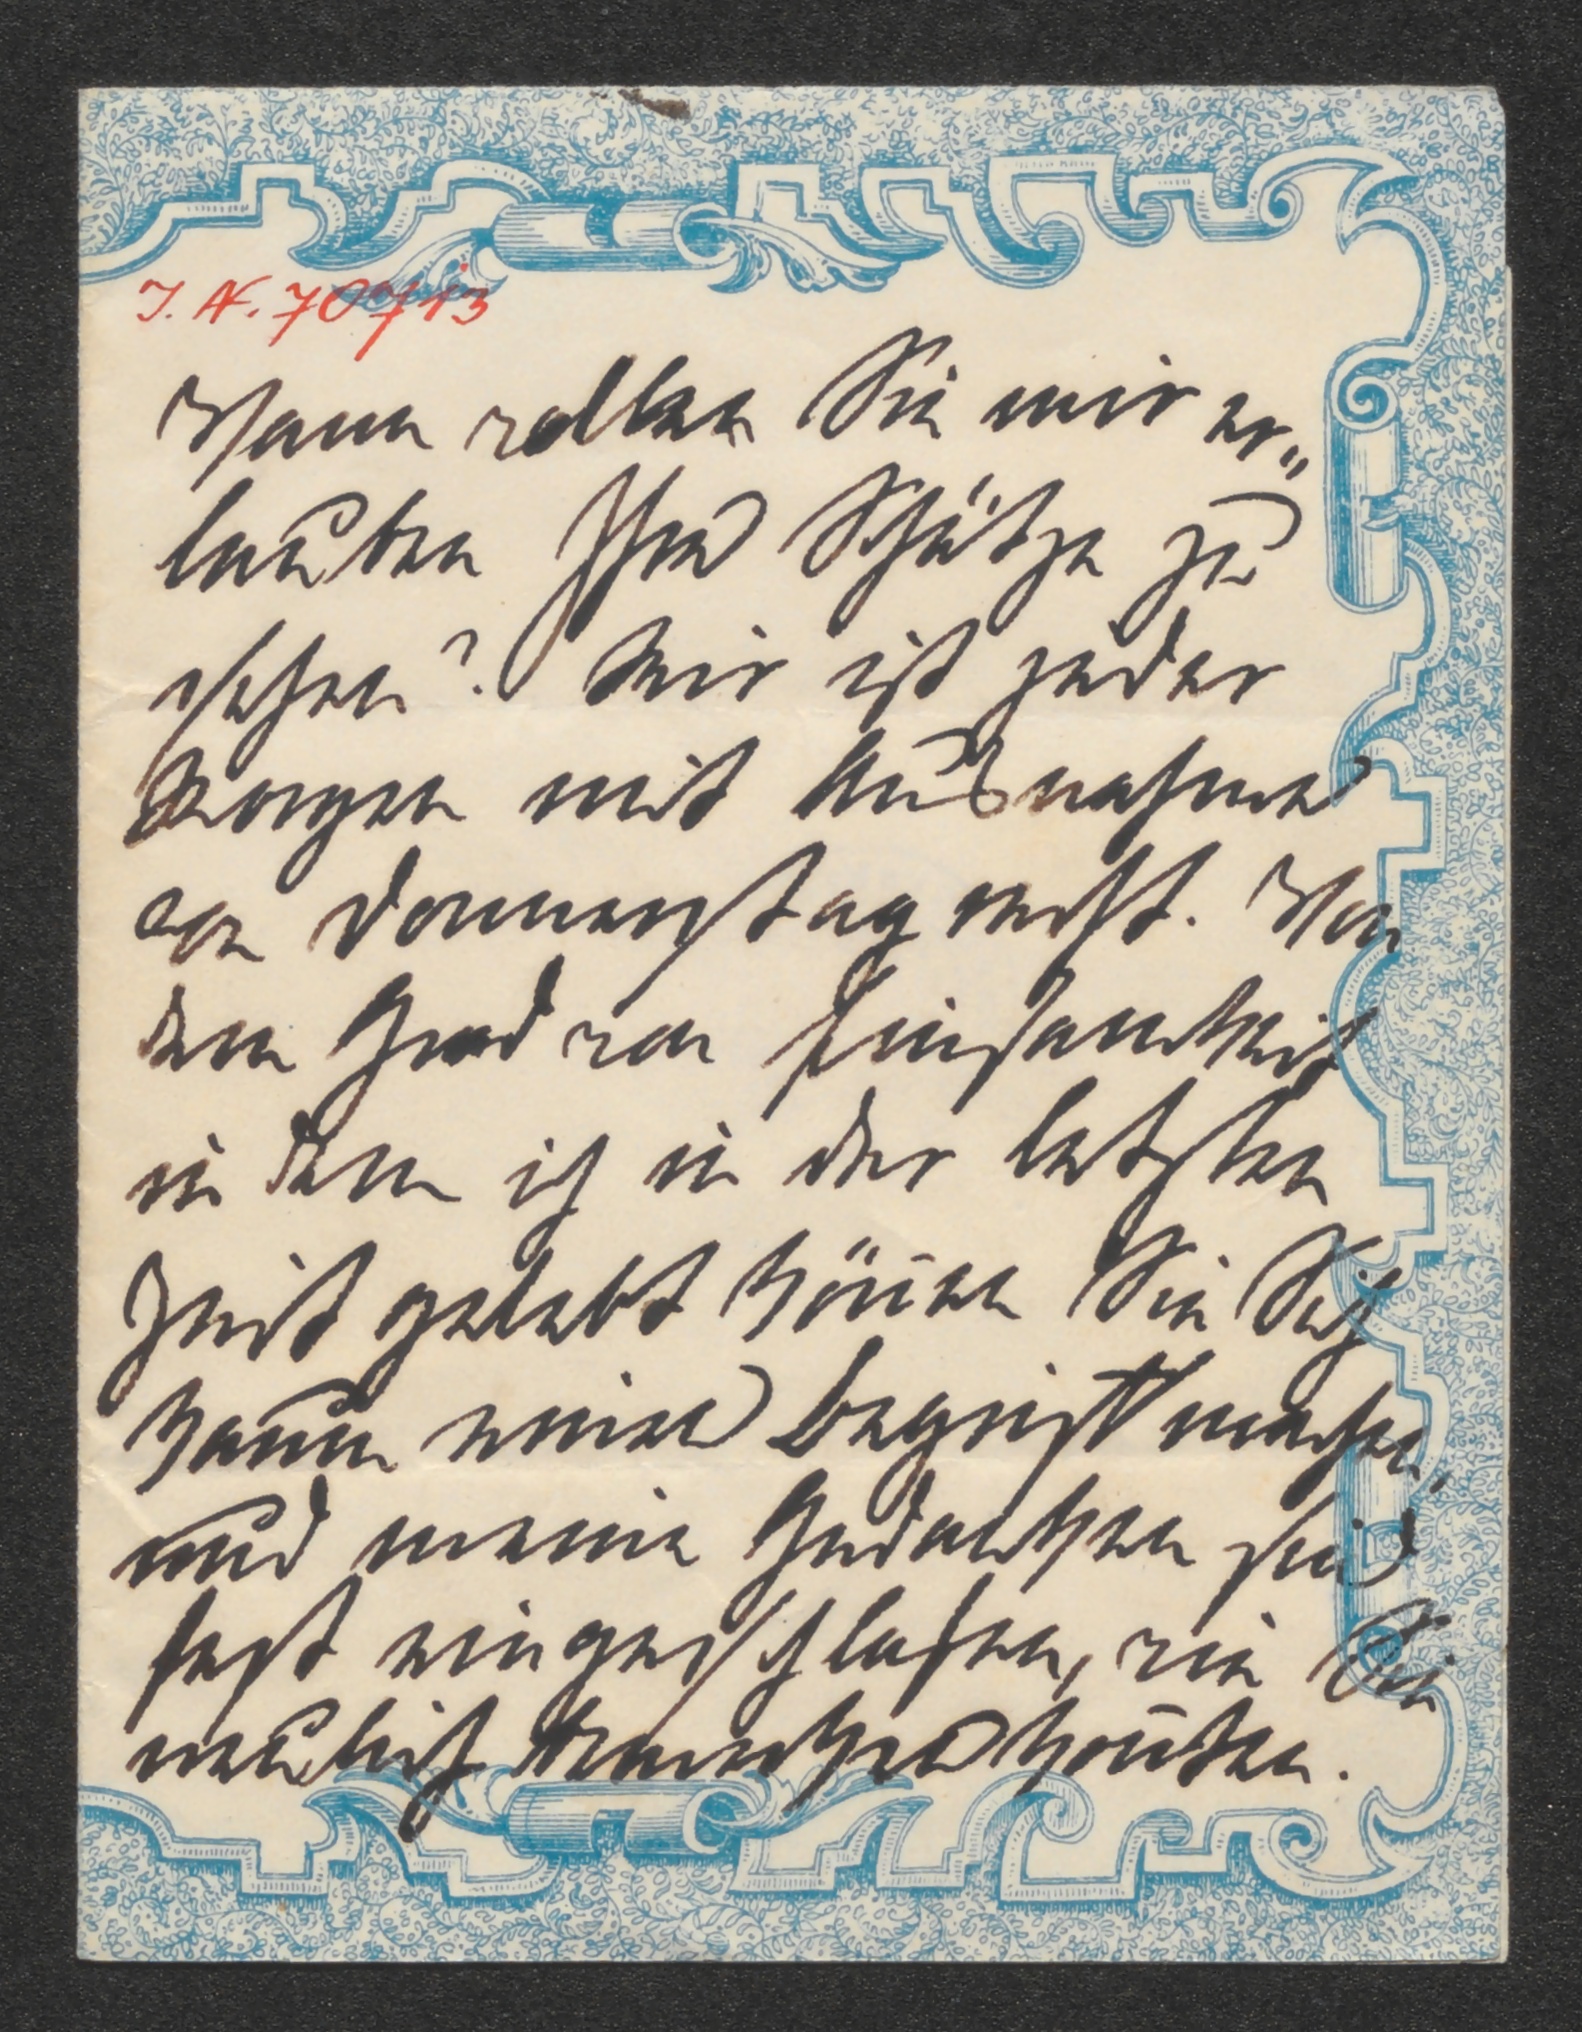 J. N. 70713
Wann wollen Sie mir er„
lauben Ihre Schätze zu
sehen? Mir ist jeder
Morgen mit Ausnahme
von Donnerstag recht. Von
dem Grad von Einsamkeit
in dem ich in der letzten
Zeit gelebt können Sie Sich
kaum einen Begriff machen,
und meine Gedancken sind
fest eingeschlafen, wie Sie
neulich bemerken konnten.